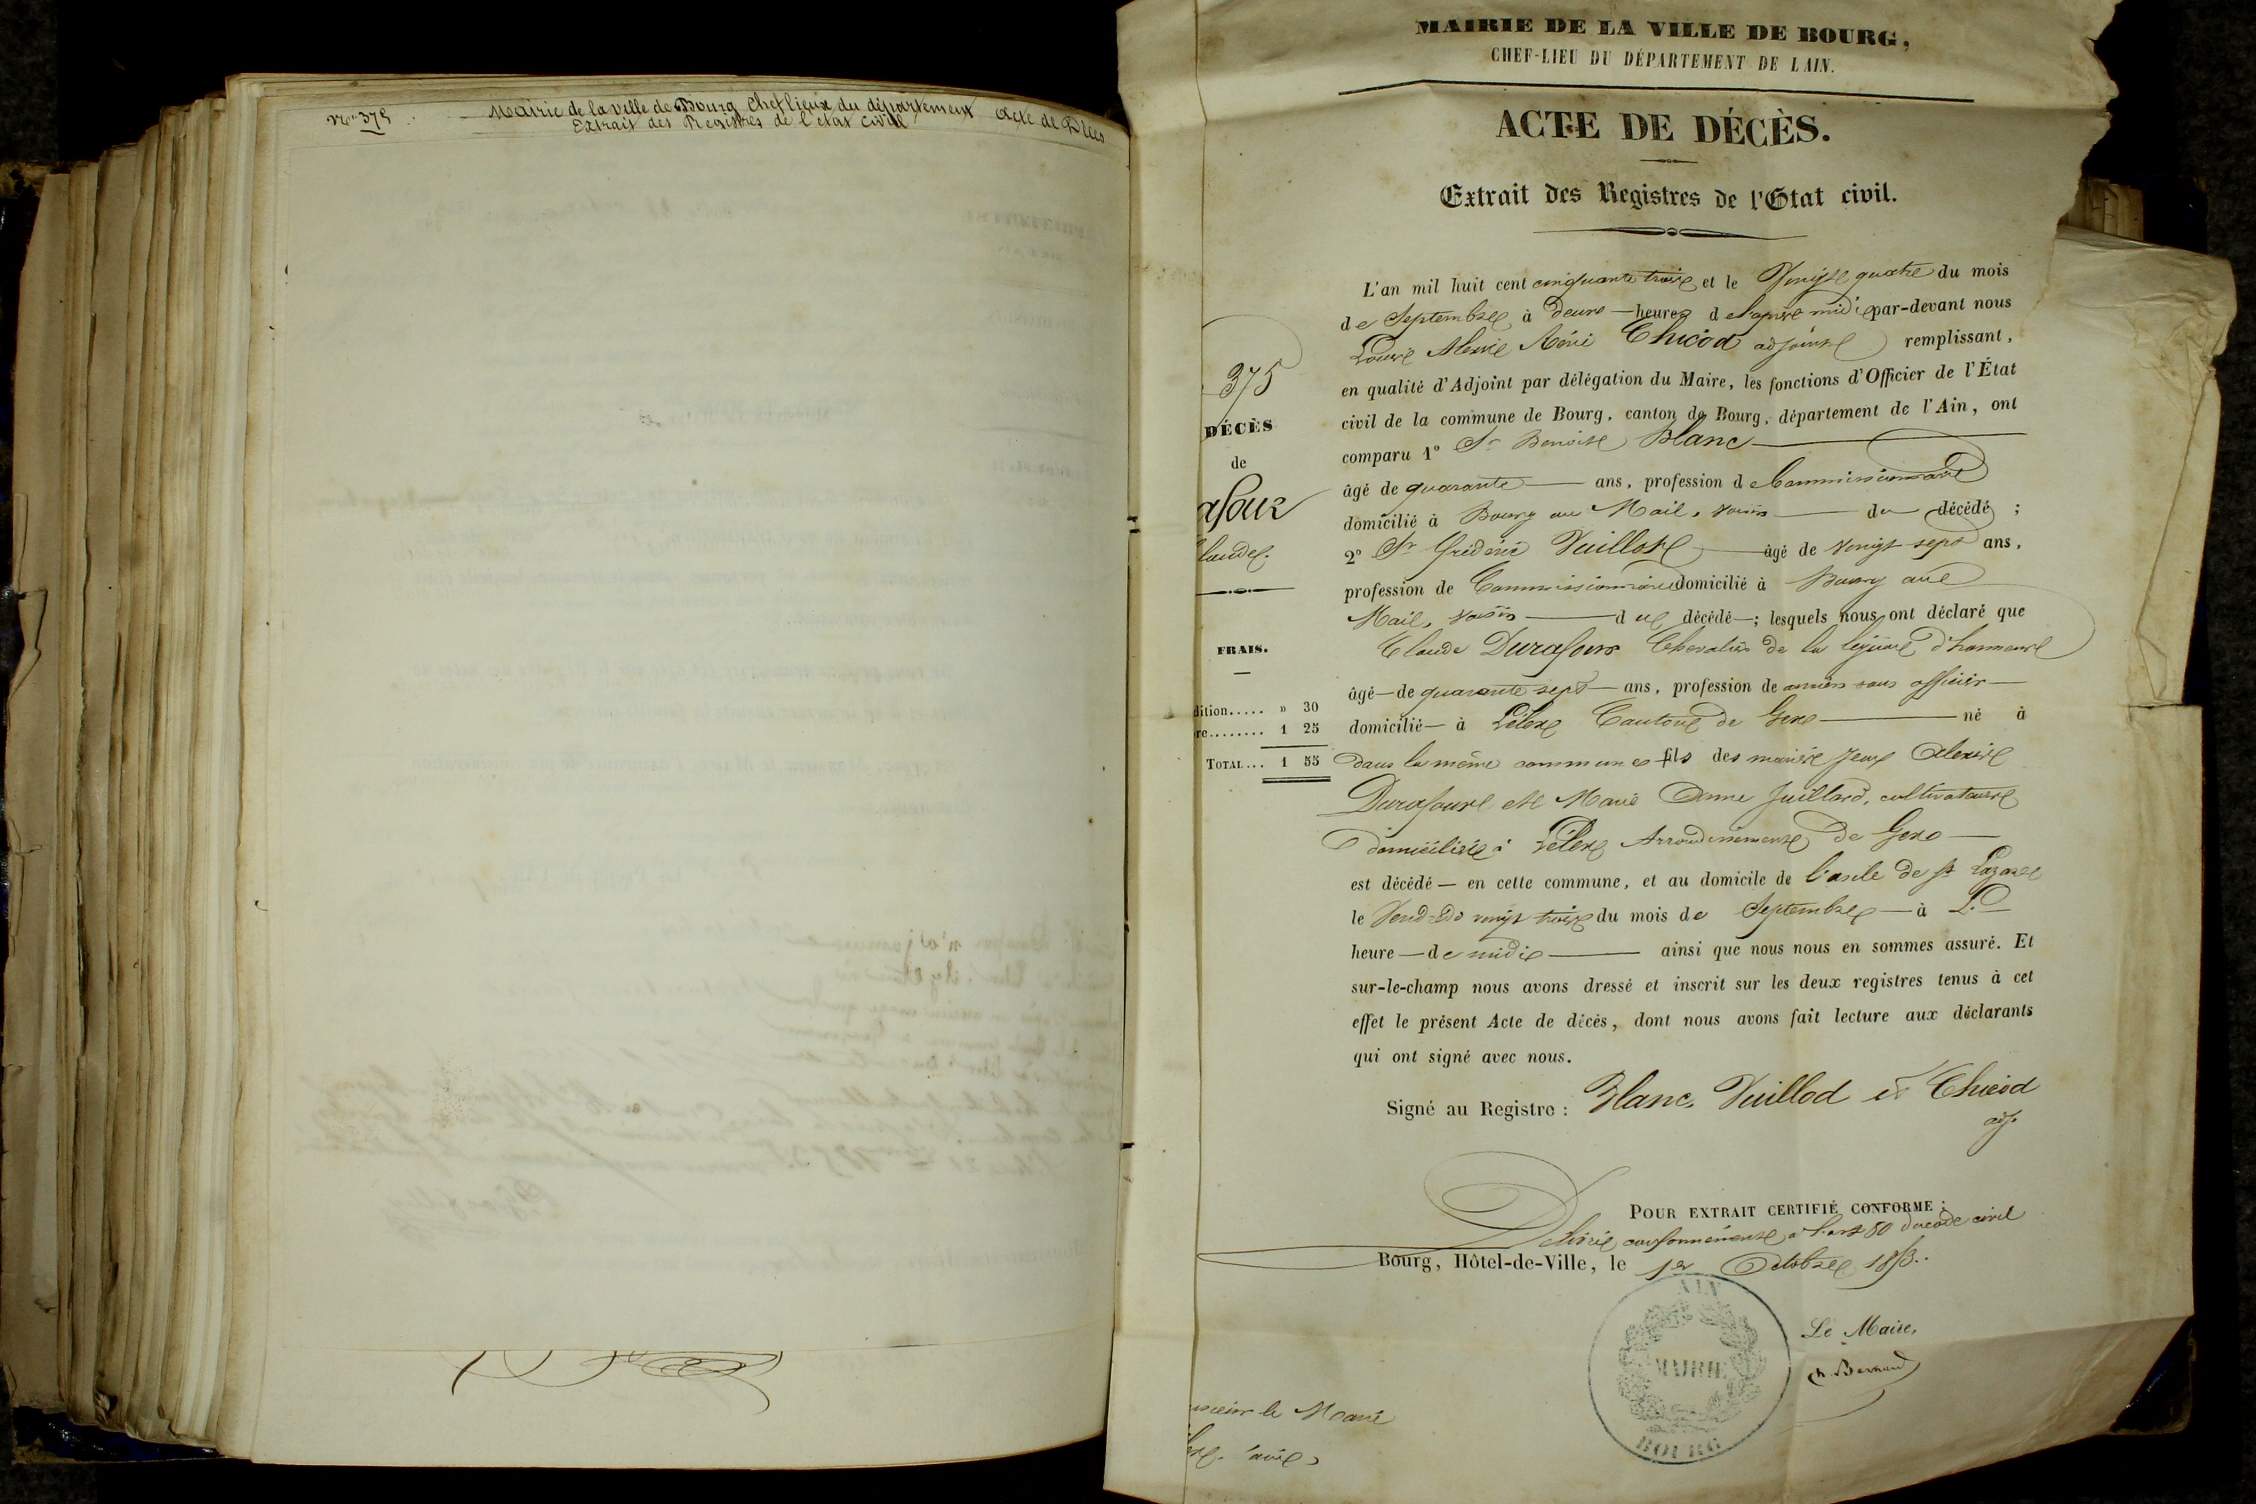 No 375 Mairie de la ville de Bourg Chef lieux du département Acte de Décès
Extrait des Registres de l'état civil
MAIRIE DE LA VILLE DE BOURG,
CHEF-LIEU DU DÉPARTEMENT DE L'AIN.
ACTE DE DÉCÈS.
Extrait des Registres de l'Etat civil.
375
DÉCÈS
de
afour
laude.
FRAIS.
dition..... » 30
re........ 1 25
TOTAL... 1 55
L'an mil huit cent cinquante trois et le Vingt quatre du mois
de Septembre à deux heures de l'après midi par-devant nous
Louis Alexis Réné Chicod adjoint remplissant,
en qualité d'Adjoint par délégation du Maire, les fonctions d'Officier de l'État
civil de la commune de Bourg, canton de Bourg, département de l'Ain, ont
comparu 1° Sr Benoit Blanc
âgé de quarante ans, profession de Commissionnaire
domicilié à Bourg au Mail, voisin du décédé ;
2° Sr Frédéric Vuillot âgé de vingt sept ans,
profession de Commissionnaire domicilié à Bourg au
Mail, voisin du décédé ; lesquels nous ont déclaré que
Claude Durafour Chevalier de la légion d'honneur
âgé de quarante sept ans, profession de ancien sous officier
domicilié à Lélex Canton de Gex né à
dans la même commune fils des mariés Jean Alexis
Durafour et Marie Juillard, cultivateurs
domiciliés à Lélex Arrondissement de Gex
est décédé en cette commune, et au domicile de l'asile de St Lazare
le Vend-di vingt trois du mois de Septembre à
heure de midi ainsi que nous nous en sommes assuré. Et
sur-le-champ nous avons dressé et inscrit sur les deux registres tenus à cet
effet le présent Acte de décès, dont nous avons fait lecture aux déclarants
qui ont signé avec nous.
Signé au Registre : Blanc, Vuillod et Chicod
adj.
POUR EXTRAIT CERTIFIÉ CONFORME :
Délivré conformément à l'art 80 du code civil
Bourg, Hôtel-de-Ville, le 1er Octobre 1853.
AIN
MAIRIE
BOURG
Le Maire,
Bernard
le Maire